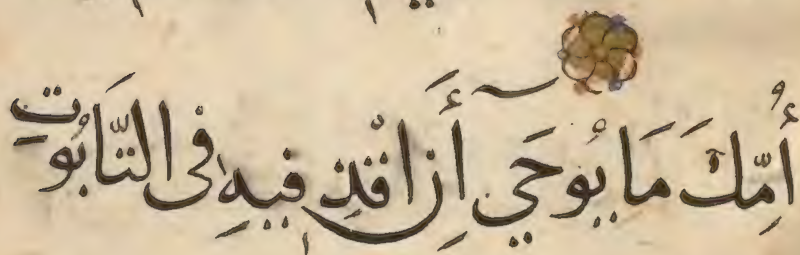 أُمِّكَ مَا يُوحَىٓ أَنِ اقْذِفِيهِ فِى التَّابُوتِ